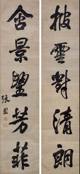 披雲對清朗
含景望芳菲
張